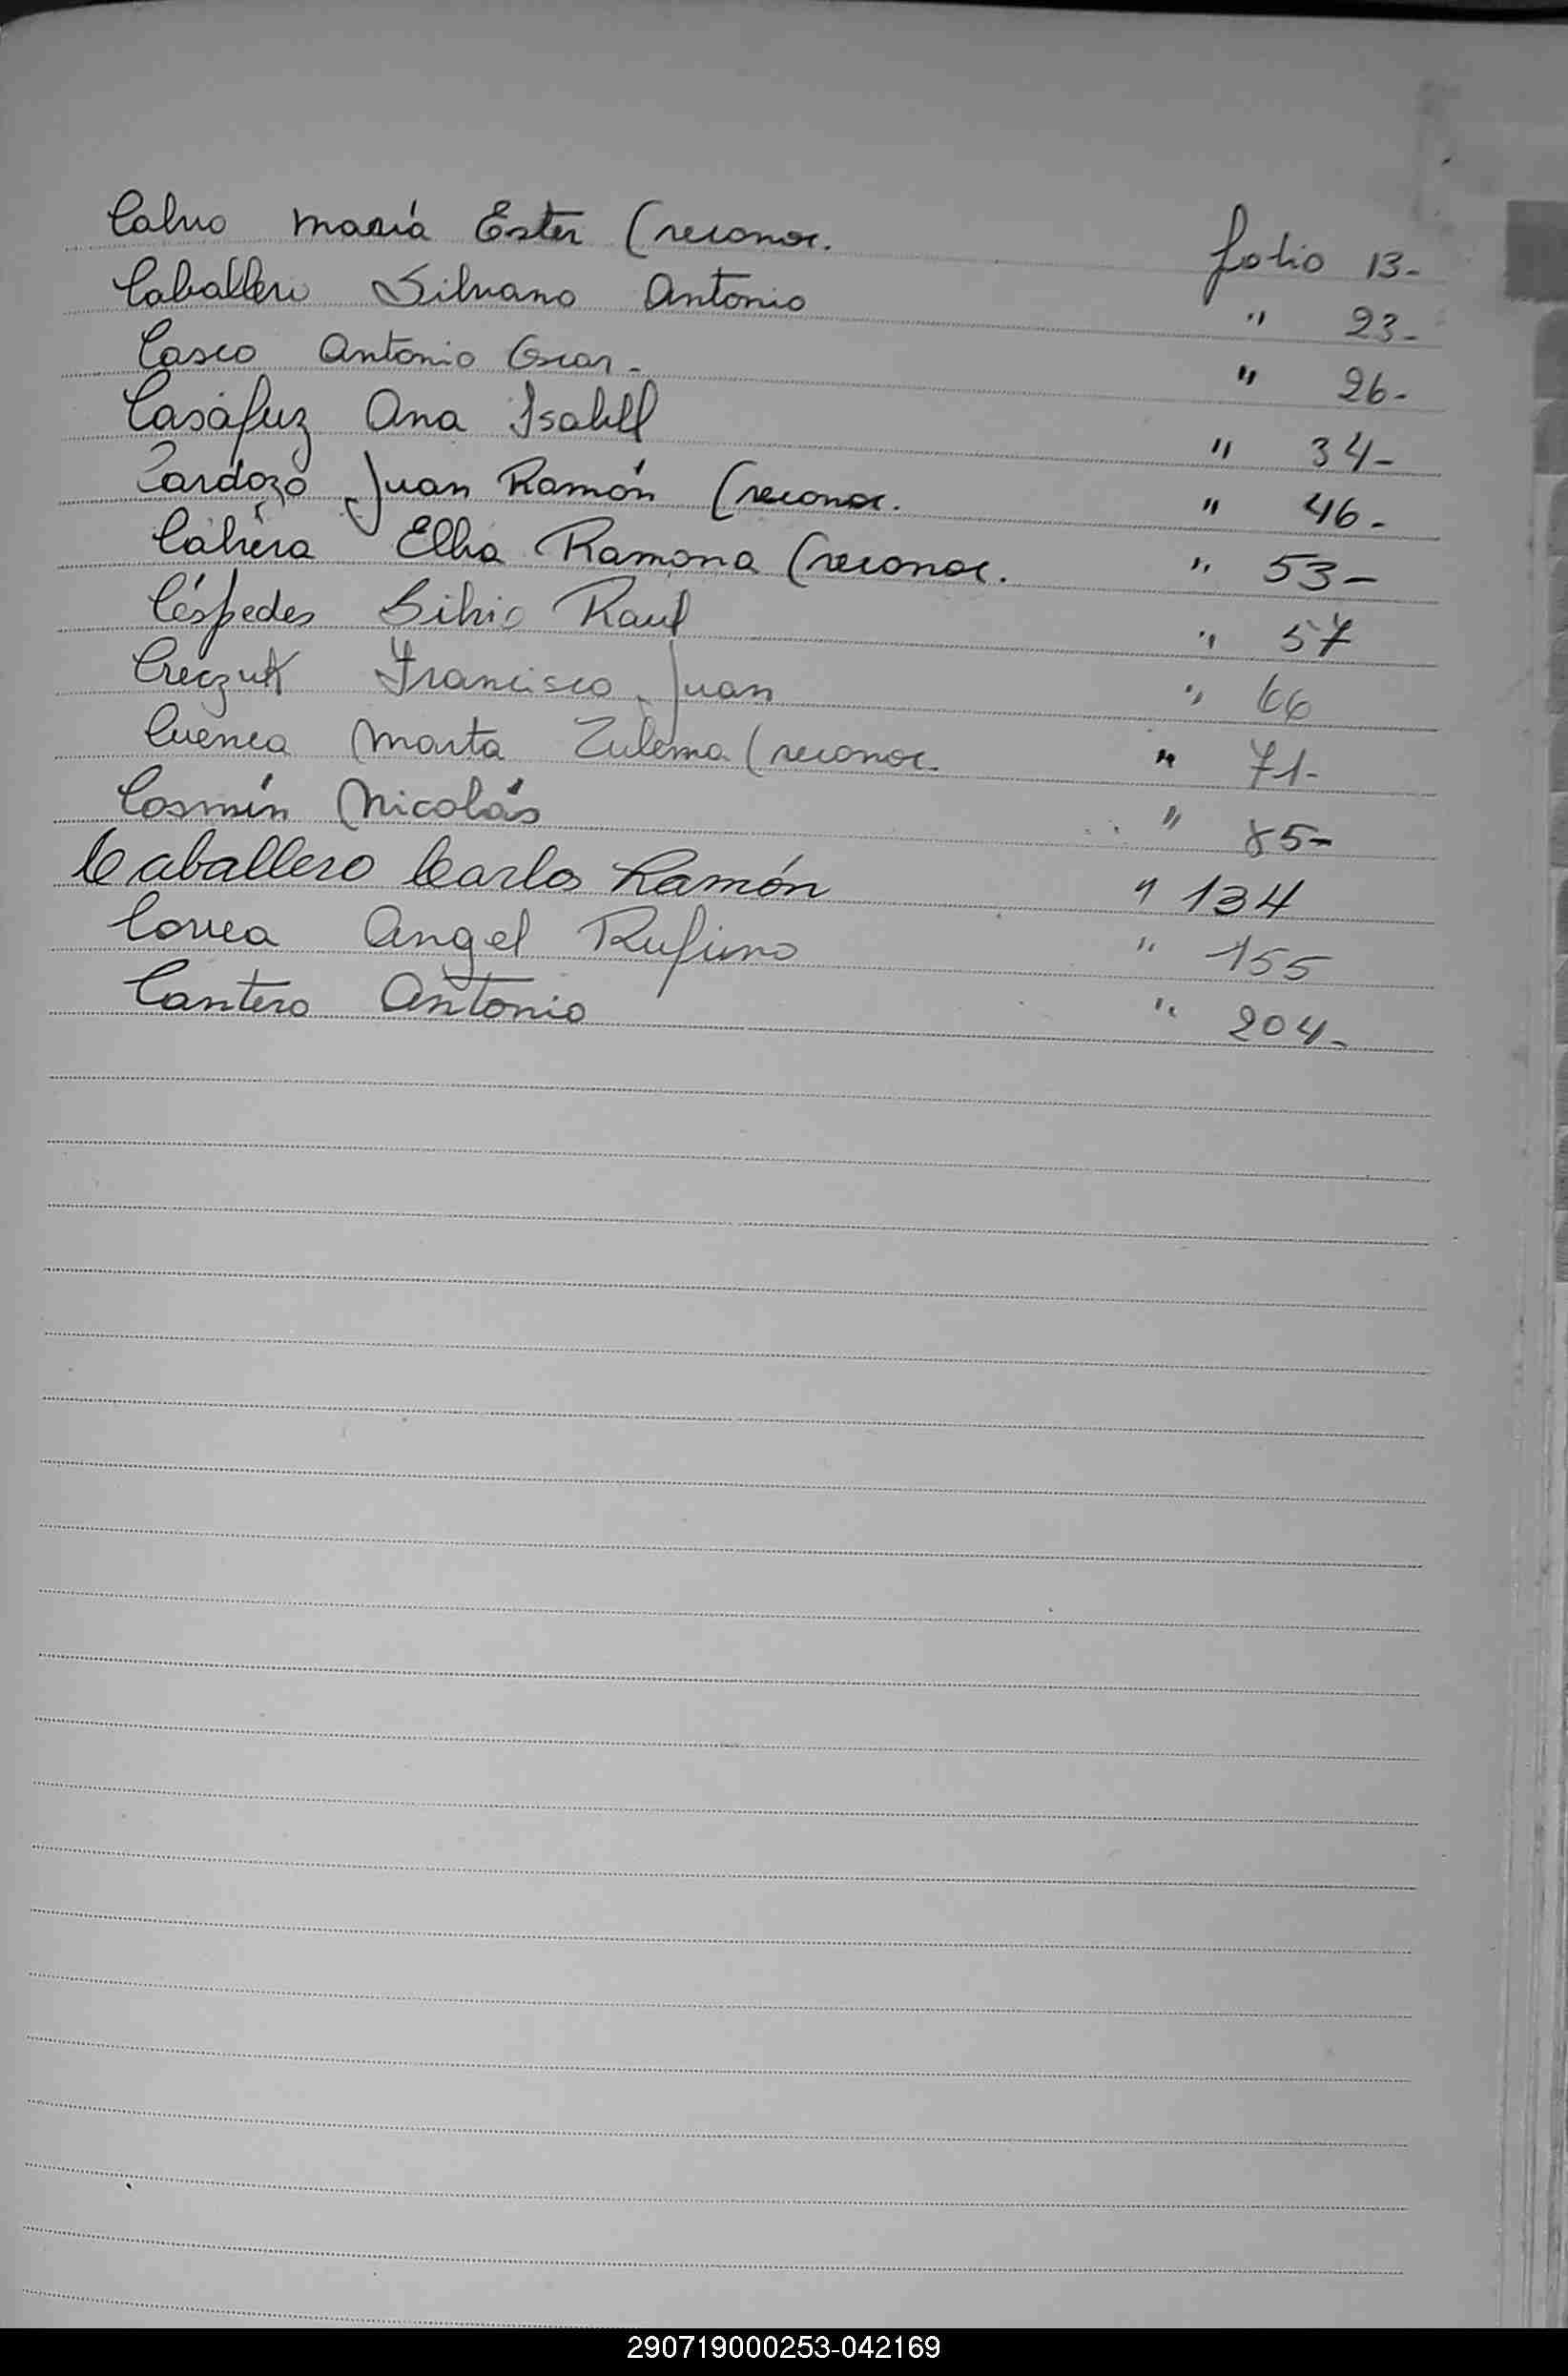 Calvo María Ester (reconoc. folio 13-
Caballero Silvano Antonio " 23-
Casco Antonio Oscar - " 26-
Casafuz Ana Isabel " 34-
Cardozo Juan Ramón (reconoc. " 46-
Cabrera Elba Ramona (reconoc. " 53-
Céspedes Silvio Raul " 57
Creczuk Francisco Juan " 66
Cuenca Marta Zulema (reconoc. " 71-
Cosmín Nicolás " 85-
Caballero Carlos Ramón " 134
Correa Angel Rufino " 155
Cantero Antonio " 204-
290719000253-042169